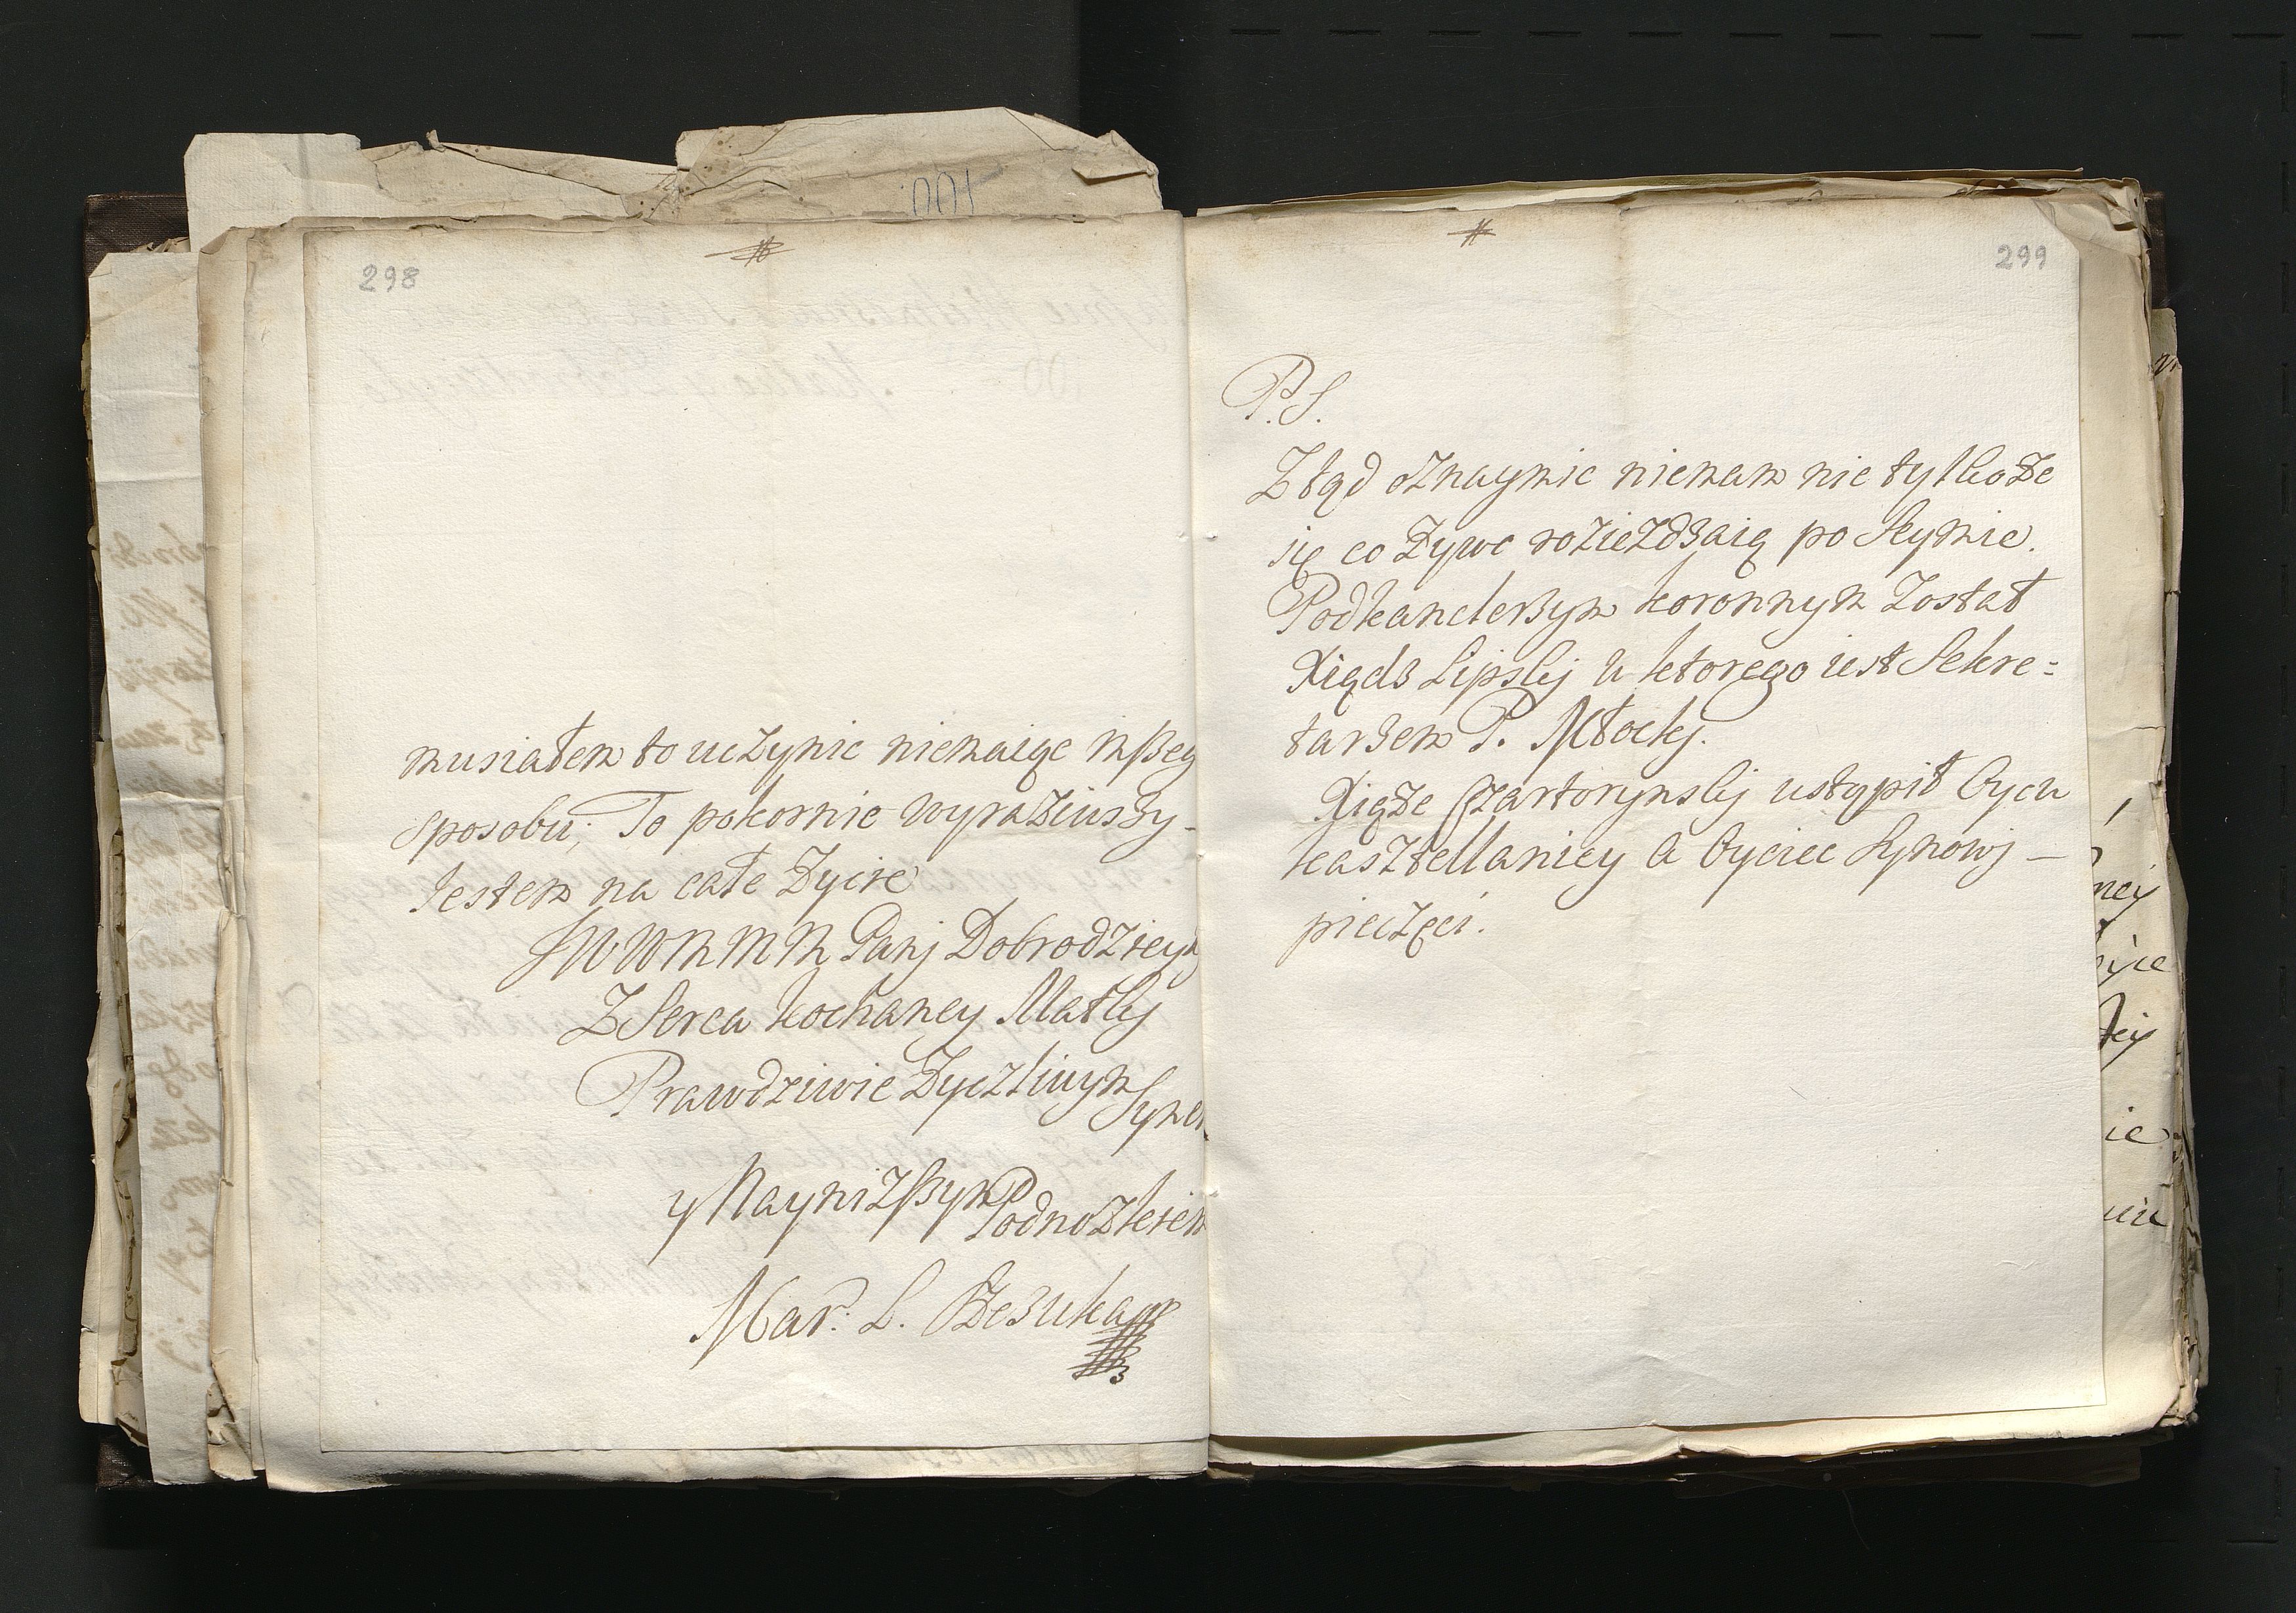 298
musiałem to uczynic niemaiąc inszeg
sposobu; To pokornie wyraziwszy-
Jestem na całe Zycie
JWWMMM Panj Dobrodzieyk
Z Serca kochaney Matkj
Prawdziwie Zyczliwym Synem
y Naynizszym Podnozkiem
299
P.S.
Ztąd oznaymic niemam nie tylko ze
się co Zywo roziezdzaią po Seymie.
Podkanclerzym koronnym został
Xiądz Lipskj u ktorego iest Sekre=
tarzem P. Młockj.
Xiąze Czartorynskj ustąpił Oycu
kasztellaniey a Oyciec Synowj —
pieczęci.